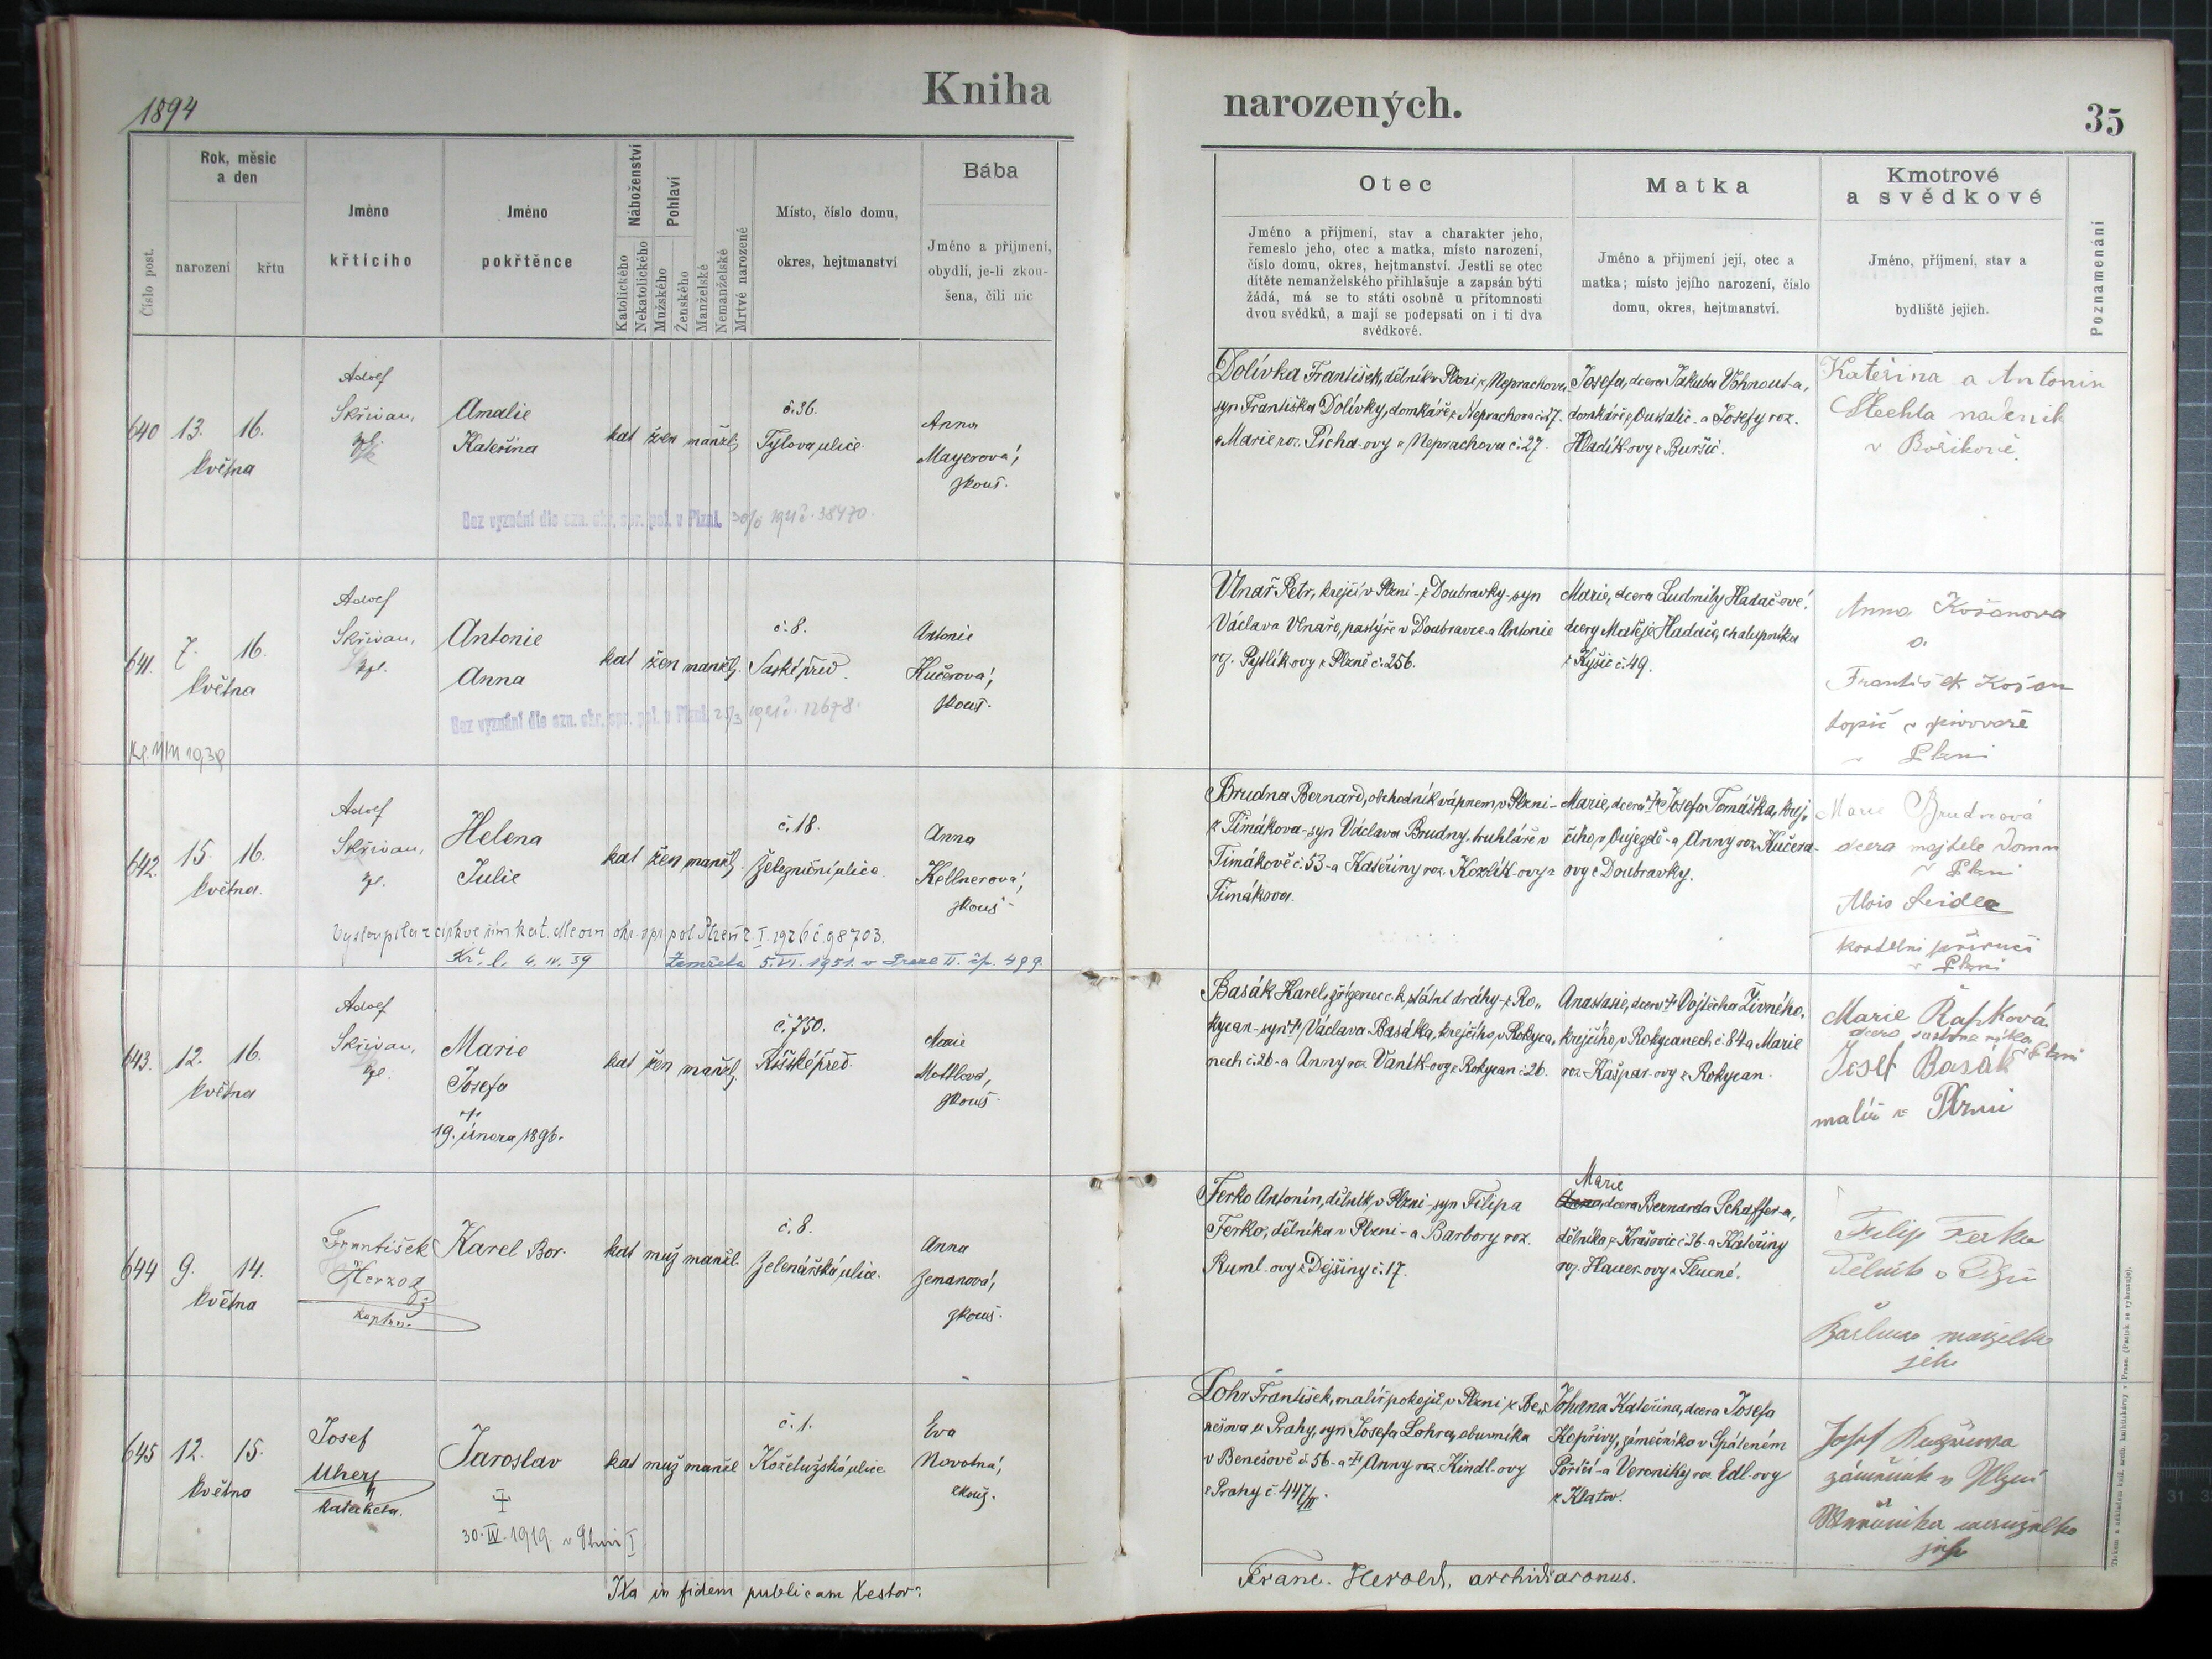 1894
Kniha
narozených.
35
Číslo post.
Rok, měsíc
a den
narození
křtu
Jméno
křtícího
Jméno
pokřtěnce
Náboženství
Katolického
Nekatolického
Pohlaví
Mužského
Ženského
Manželské
Nemanželské
Mrtvě narozené
Místo, číslo domu,
okres, hejtmanství
Bába
Jméno a příjmení,
obydlí, je-li zkou-
šena, čili nic
Otec
Jméno a příjmení, stav a charakter jeho,
řemeslo jeho, otec a matka, místo narození,
číslo domu, okres, hejtmanství. Jestli se otec
dítěte nemanželského přihlašuje a zapsán býti
žádá, má se to státi osobně u přítomnosti
dvou svědků, a mají se podepsati on i ti dva
svědkové.
Matka
Jméno a příjmení její, otec a
matka; místo jejího narození, číslo
domu, okres, hejtmanství.
Kmotrové
a svědkové
Jméno, příjmení, stav a
bydliště jejich.
Poznamenání
640 13. 16.
května
Adolf
Skřivan,
kpl.
Amalie
Kateřina
kat žen manžel.
č. 36.
Tylova ulice.
Anna
Mayerová,
zkouš.
Bez vyznání dle ozn. okr. spr. pol. v Plzni. 1921 č. 38470.
Dolívka František, dělník v Plzni z Neprachova,
syn Františka Dolívky, domkáře z Neprachova č. 27.
a Marie roz. Pícha-ovy z Neprachova č. 27.
Josefa, dcera Jakuba Vohnout-a,
domkáře z Ouštalic a Josefy roz.
Hladík-ovy z Buršic.
Kateřina a Antonín
Šlechta
v Bořikově.
641. 7. 16.
května
Adolf
Skřivan,
kpl.
Antonie
Anna
kat žen manžel.
č. 8.
Saské před.
Antonie
Kučerová,
zkouš.
Bez vyznání dle ozn. okr. spr. pol. v Plzni. 25/3 1921 č. 12678.
Vlnař Petr, krejčí v Plzni - z Doubravky - syn
Václava Vlnaře, pastýře v Doubravce a Antonie
roz. Pytlík-ovy z Plzně č. 256.
Marie, dcera Ludmily Hadač-ové,
dcery Matěje Hadače, chalupníka
z Kyšic č. 49.
Anna Košanova
a.
František Košan
topič v pivovaře
v Plzni
642. 15. 16.
května.
Adolf
Skřivan,
kpl.
Helena
Julie
kat žen manžel.
č. 18.
Železniční ulice.
Anna
Kellnerová,
zkouš.
Vystoupila z církve řím. kat. dle ozn. okr. spr. pol. Plzeň 2. I. 1926 č. 98703.
Kř. l. 4. IV. 39
Zemřela 5. VI. 1951. v Praze II. čp. 499.
Brudna Bernard, obchodník vápnem, v Plzni -
z Timákova - syn Václava Brudny, truhláře v
Timákově č. 53 - a Kateřiny roz. Kozlík-ovy z
Timákova.
Marie, dcera † Josefa Tomáška, krej-
čího, v Oujezdě - a Anny roz. Kučera-
ovy z Doubravky.
Marie Brudnová
dcera majitele domu
v Plzni
Alois Seidler
kostelní příručí
v Plzni
643. 12. 16.
května
Adolf
Skřivan,
kpl.
Marie
Josefa
†
19. února 1896.
kat žen manžel.
č. 750.
Říšské před.
Marie
Mottlová,
zkouš.
Basák Karel, zřízenec c. k. státní dráhy - z Ro-
kycan - syn † Václava Basáka, krejčího, v Rokyca-
nech č. 26 - a Anny roz. Vaník-ovy z Rokycan č. 26.
Anastasie, dcera † Vojtěcha Živného,
krejčího, v Rokycanech č. 84 a Marie
roz. Kašpar-ovy z Rokycan.
Marie Řapková
dcera v Plzni
Josef Basák
malíř v Plzni
644 9. 14.
května
František
Herzog
kaplan.
Karel Bor.
kat muž manžel.
č. 8.
Zelenářská ulice.
Anna
Zemanová,
zkouš.
Ferko Antonín, dělník, v Plzni - syn Filipa
Ferko, dělníka v Plzni - a Barbory roz.
Ruml-ovy z Dejšiny č. 17.
Marie
Anna, dcera Bernarda Schaffer-a,
dělníka z Krašovic č. 26 - a Kateřiny
roz. Hauer-ovy z Tlucné.
Filip Ferko
Dělník v Plzni
manželka
jeho
645 12. 15.
května
Josef
Uherý
katecheta.
Jaroslav
‡
30. IV. 1919. v Plzni I
kat muž manžel
č. 1.
Koželužská ulice
Eva
Novotná,
zkouš.
Lohr František, malíř pokojů, v Plzni z Be-
nešova u Prahy, syn Josefa Lohra, obuvníka
v Benešově č. 56 - a † Anny roz. Kindl-ovy
z Prahy č. 447/II.
Johana Kateřina, dcera Josefa
Kopřivy, zámečníka v Spáleném
Poříčí - a Veroniky roz. Edl-ovy
z Klatov.
Josef Kopřiva
zámečník v Plzni
Veronika manželka
jeho
Ita in fidem publicam testor:
Franc. Herold, archidiaconus.